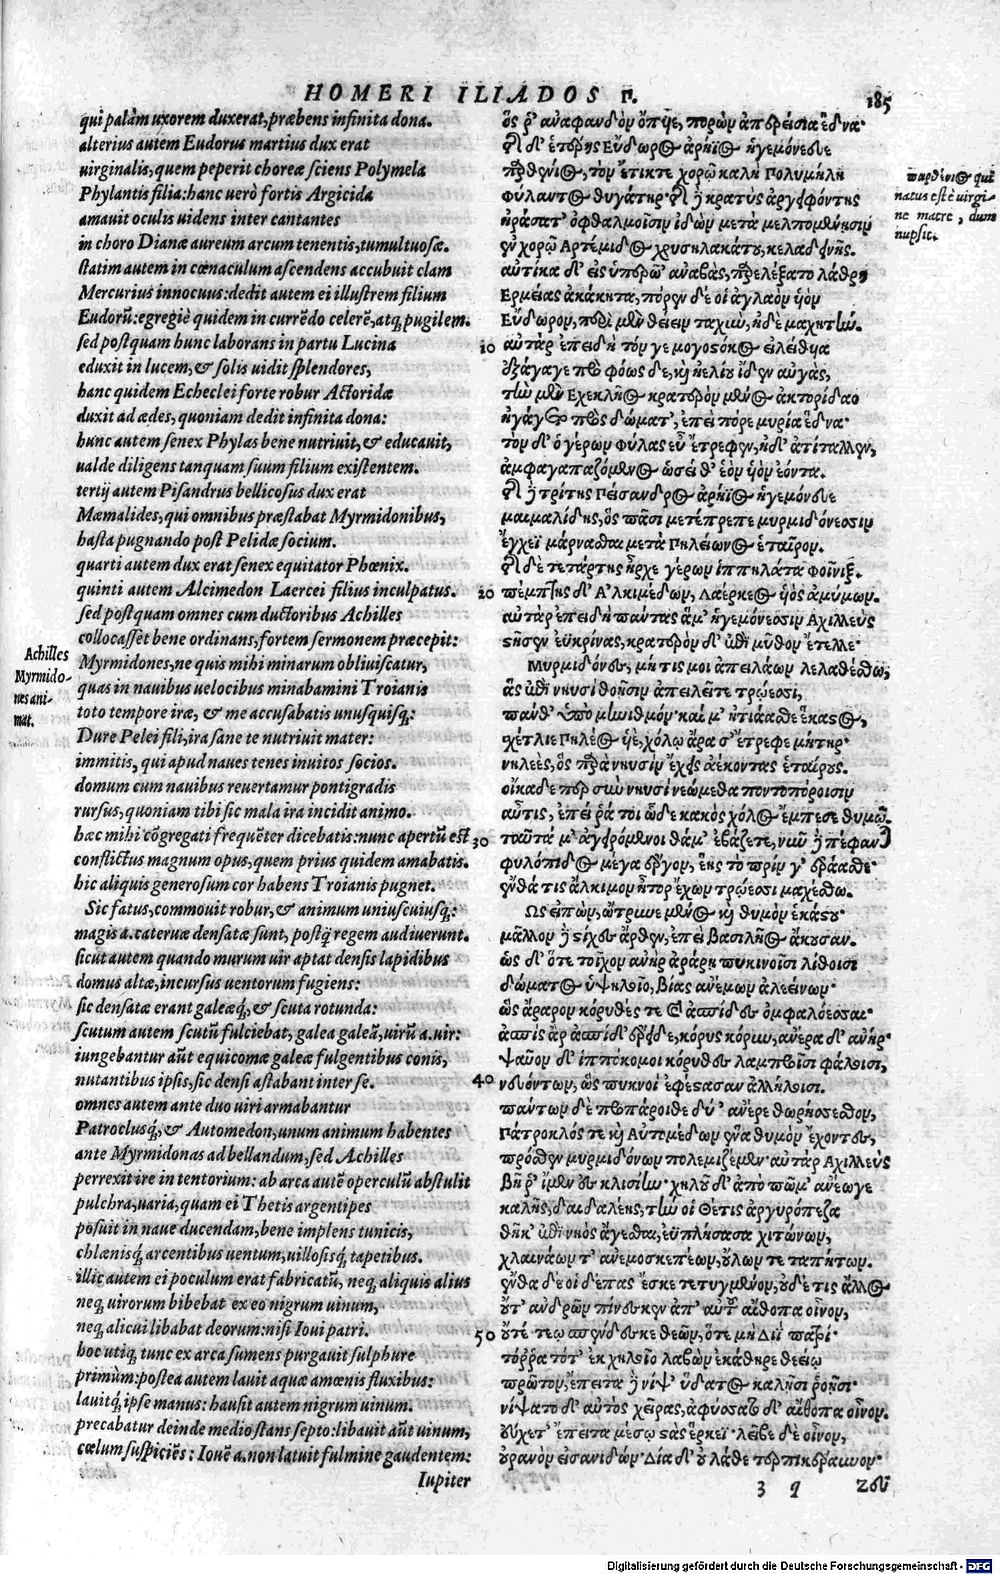 HOMERI ILIADOS Π. 185
qui palàm uxorem duxerat, præbens infinita dona.
alterius autem Eudorus martius dux erat
uirginalis, quem peperit choreæ sciens Polymela
Phylantis filia: hanc uerò fortis Argicida
amauit oculis uidens inter cantantes
in choro Dianæ aureum arcum tenentis, tumultuosæ.
statim autem in cœnaculum ascendens accubuit clam
Mercurius innocuus: dedit autem ei illustrem filium
Eudorũ: egregiè quidem in currẽdo celerẽ, atq; pugilem.
sed postquam hunc laborans in partu Lucina
eduxit in lucem, & solis uidit splendores,
hanc quidem Echeclei forte robur Actoridæ
duxit ad ædes, quoniam dedit infinita dona:
hunc autem senex Phylas bene nutriuit, & educauit,
ualde diligens tanquam suum filium existentem.
tertij autem Pisandrus bellicosus dux erat
Mæmalides, qui omnibus præstabat Myrmidonibus,
hasta pugnando post Pelidæ socium.
quarti autem dux erat senex equitator Phœnix.
quinti autem Alcimedon Laercei filius inculpatus.
sed postquam omnes cum ductoribus Achilles
collocasset bene ordinans, fortem sermonem præcepit:
Myrmidones, ne quis mihi minarum obliuiscatur,
quas in nauibus uelocibus minabamini Troianis
toto tempore iræ, & me accusabatis unusquisq;:
Dure Pelei fili, ira sane te nutriuit mater:
immitis, qui apud naues tenes inuitos socios.
domum cum nauibus reuertamur pontigradis
rursus, quoniam tibi sic mala ira incidit animo.
hæc mihi cõgregati frequẽter dicebatis: nunc apertũ est
conflictus magnum opus, quem prius quidem amabatis.
hic aliquis generosum cor habens Troianis pugnet.
Sic fatus, commouit robur, & animum uniuscuiusq;:
magis a. cateruæ densatæ sunt, postq̃ regem audiuerunt.
sicut autem quando murum uir aptat densis lapidibus
domus altæ, incursus uentorum fugiens:
sic densatæ erant galeæq;, & scuta rotunda:
scutum autem scutũ fulciebat, galea galeã, uirũ a. uir:
iungebantur aũt equicomæ galeæ fulgentibus conis,
nutantibus ipsis, sic densi astabant inter se.
omnes autem ante duo uiri armabantur
Patroclusq;, & Automedon, unum animum habentes
ante Myrmidonas ad bellandum, sed Achilles
perrexit ire in tentorium: ab arca autẽ operculũ abstulit
pulchra, uaria, quam ei Thetis argentipes
posuit in naue ducendam, bene implens tunicis,
chlænisq; arcentibus uentum, uillosisq; tapetibus.
illic autem ei poculum erat fabricatũ, neq; aliquis alius
neq; uirorum bibebat ex eo nigrum uinum,
neq; alicui libabat deorum: nisi Ioui patri.
hoc utiq; tunc ex arca sumens purgauit sulphure
primùm: postea autem lauit aquæ amœnis fluxibus:
lauitq; ipse manus: hausit autem nigrum uinum.
precabatur deinde medio stans septo: libauit aũt uinum,
cœlum suspiciẽs: Iouẽ a. non latuit fulmine gaudentem:
Iupiter
Achilles
Myrmido-
nes ani-
mat.
ὅς ῥ' ἀναφανδὸν ὄπυιε, πορὼν ἀπερείσια ἕδνα·
Τῆς δ' ἑτέρης Εὔδωρος ἀρήϊος ἡγεμόνευε
παρθένιος, τὸν ἔτικτε χορῷ καλὴ Πολυμήλη
Φύλαντος θυγάτηρ· τῆς δὲ κρατὺς ἀργειφόντης
ἠράσατ' ὀφθαλμοῖσιν ἰδὼν μετὰ μελπομένῃσιν
ἐν χορῷ Ἀρτέμιδος χρυσηλακάτου, κελαδεινῆς.
αὐτίκα δ' εἰς ὑπερῷ' ἀναβὰς, παρελέξατο λάθρῃ
Ἑρμείας ἀκάκητα, πόρεν δέ οἱ ἀγλαὸν υἱὸν
Εὔδωρον, πέρι μὲν θείειν ταχὺν, ἠδὲ μαχητήν.
10 αὐτὰρ ἐπειδὴ τόν γε μογοστόκος εἰλείθυια
ἐξάγαγε πρὸ φόως δε, καὶ ἠελίου ἴδεν αὐγὰς,
τὴν μὲν Ἐχεκλῆος κρατερὸν μένος ἀκτορίδαο
ἠγάγετο πρὸς δώματ', ἐπεὶ πόρε μυρία ἕδνα·
τὸν δ' ὁ γέρων φύλας εὖ ἔτρεφεν, ἠδ' ἀτίταλλεν,
ἀμφαγαπαζόμενος ὡσεί θ' ἑὸν υἱὸν ἐόντα.
Τῆς δὲ τρίτης Πείσανδρος ἀρήϊος ἡγεμόνευε
μαιμαλίδης, ὃς πᾶσι μετέπρεπε μυρμιδόνεσσιν
ἔγχεϊ μάρνασθαι μετὰ Πηλείωνος ἑταῖρον.
Τῆς δὲ τετάρτης ἦρχε γέρων ἱππηλάτα φοίνιξ.
20 πέμπτης δ' Ἀλκιμέδων, Λαέρκεος υἱὸς ἀμύμων.
αὐτὰρ ἐπειδὴ πάντας ἅμ' ἡγεμόνεσσιν Ἀχιλλεὺς
στῆσεν ἐϋκρίνας, κρατερὸν δ' ἐπὶ μῦθον ἔτελλε·
Μυρμιδόνες, μή τις μοι ἀπειλάων λελαθέσθω,
ἃς ἐπὶ νηυσὶ θοῇσιν ἀπειλεῖτε τρώεσσι,
πάνθ' ὑπὸ μηνιθμὸν· καί μ' ᾐτιάασθε ἕκαστος,
σχέτλιε Πηλέος υἱὲ, χόλῳ ἄρα σ' ἔτρεφε μήτηρ·
νηλεὲς, ὃς παρὰ νηυσὶν ἔχεις ἀέκοντας ἑταίρους.
οἴκαδέ περ σὺν νηυσὶ νεώμεθα ποντοπόροισιν
αὖτις, ἐπεί ῥά τοι ὧδε κακὸς χόλος ἔμπεσε θυμῷ.
30 ταῦτά μ' ἀγειρόμενοι θάμ' ἐβάζετε, νῦν δὲ πέφανται
φυλόπιδος μέγα ἔργον, ἕης τὸ πρίν γ' ἐράασθε
ἔνθά τις ἄλκιμον ἦτορ ἔχων τρώεσσι μαχέσθω.
Ὣς εἰπὼν, ὤτρυνε μένος καὶ θυμὸν ἑκάστου·
μᾶλλον δὲ στίχες ἄρθεν, ἐπεὶ βασιλῆος ἄκουσαν.
ὡς δ' ὅτε τοῖχον ἀνὴρ ἀράρῃ πυκινοῖσι λίθοισι
δώματος ὑψηλοῖο, βίας ἀνέμων ἀλεείνων·
ὣς ἄραρον κόρυθές τε καὶ ἀσπίδες ὀμφαλόεσσαι·
ἀσπὶς ἄρ ἀσπίδ' ἔρειδε, κόρυς κόρυν, ἀνέρα δ' ἀνὴρ·
ψαῦον δ' ἱππόκομοι κόρυθες λαμπροῖσι φάλοισι,
40 νευόντων, ὣς πυκνοὶ ἐφέστασαν ἀλλήλοισι.
πάντων δὲ προπάροιθε δύ' ἀνέρε θωρήσεσθον,
Πάτροκλός τε καὶ Αὐτομέδων, ἕνα θυμὸν ἔχοντες,
πρόσθεν μυρμιδόνων πολεμιζέμεν· αὐτὰρ Ἀχιλλεὺς
βῆ ῥ' ἴμεν ἐς κλισίην· χηλοῦ δ' ἀπὸ πῶμ' ἀνέῳγε
καλῆς, δαιδαλέης, τήν οἱ Θέτις ἀργυρόπεζα
θῆκ' ἐπὶ νηὸς ἄγεσθαι, ἐϋπλήσασα χιτώνων,
χλαινάων τ' ἀνεμοσκεπέων, οὔλων τε ταπήτων.
ἔνθα δέ οἱ δέπας ἔσκε τετυγμένον, οὐδέ τις ἄλλος
οὔτ' ἀνδρῶν πίνεσκεν ἀπ' αὐτοῦ αἴθοπα οἶνον,
50 οὔτέ τεῳ σπένδεσκε θεῶν, ὅτε μὴ Διῒ πατρί·
τόρρα τότ' ἐκ χηλοῖο λαβὼν ἐκάθηρε θεείῳ
πρῶτον, ἔπειτα δὲ νίψ' ὕδατος καλῇσι ῥοῇσι·
νίψατο δ' αὐτὸς χεῖρας, ἀφύσατο δ' αἴθοπα οἶνον.
εὔχετ' ἔπειτα μέσῳ στὰς ἕρκεϊ· λεῖβε δὲ οἶνον,
οὐρανὸν εἰσανιδών· Δία δ' οὐ λάθε τερπικέραυνον·
3 q Ζεῦ
παρθένιος qui
natus est è uirgi-
ne matre, dum
nupsit.
Digitalisierung gefördert durch die Deutsche Forschungsgemeinschaft - DFG